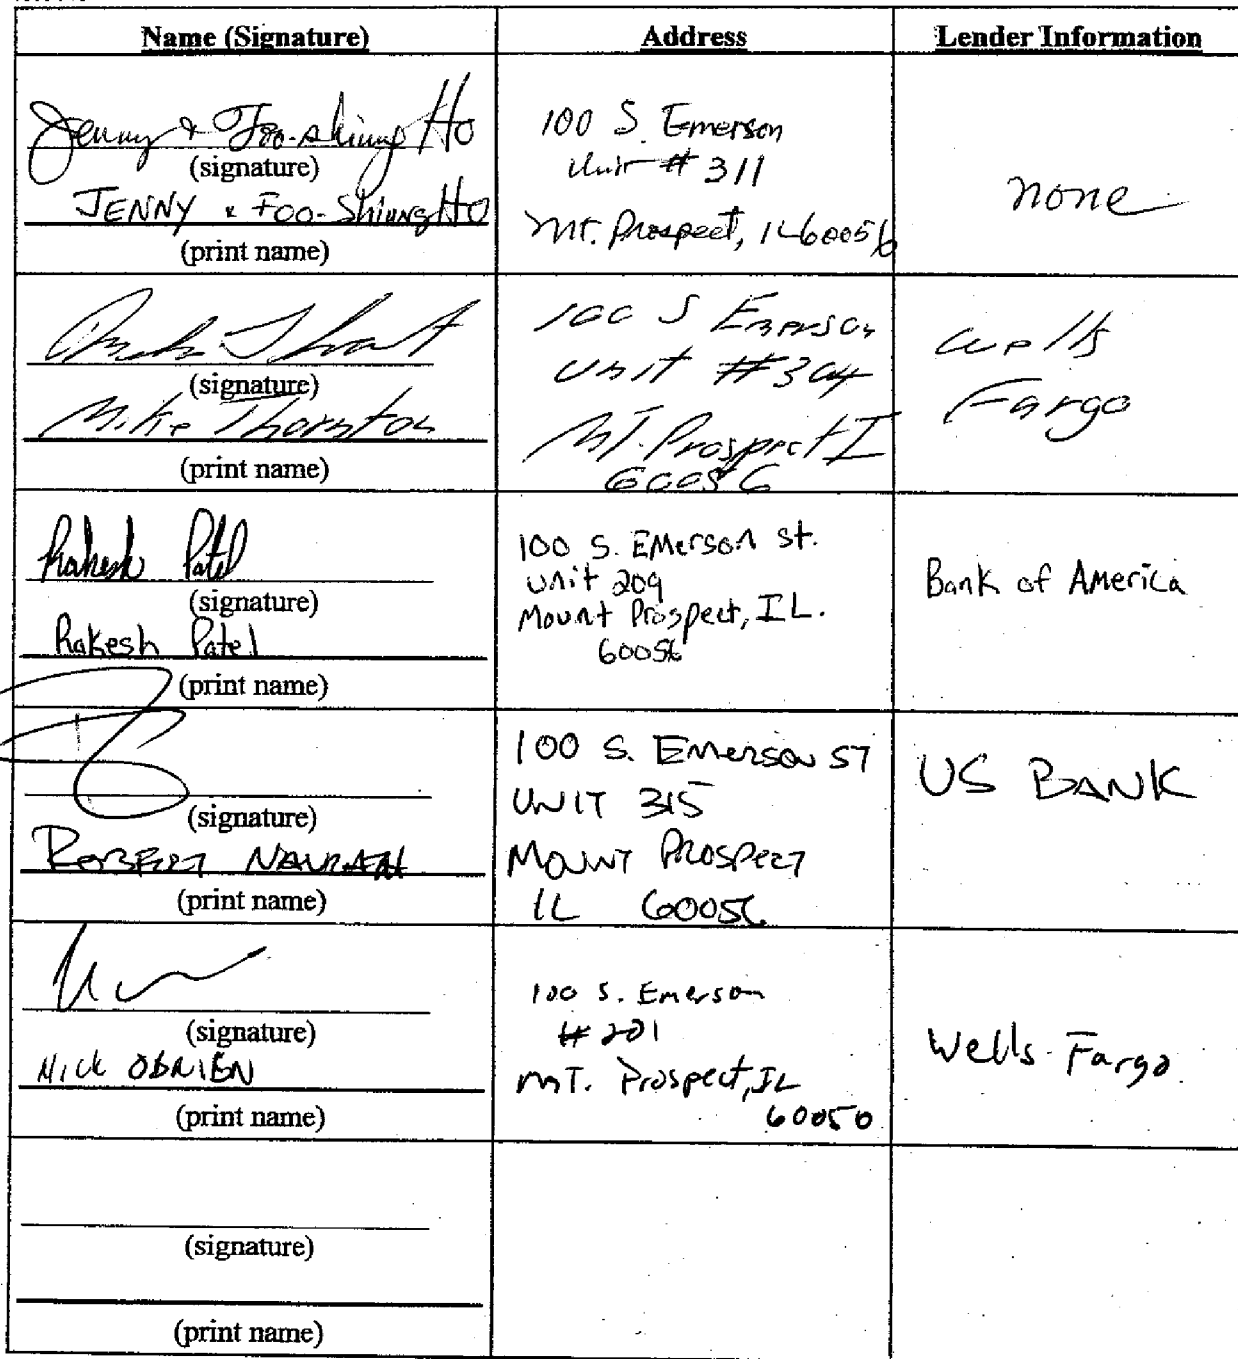 Name (Signature) Address Lender Information
Jenny & Foo-shiung Ho
(signature)
JENNY & Foo-Shiung Ho
(print name)
100 S. Emerson
Unit # 311
Mt. Prospect, IL 60056
none
(signature)
Mike Thornton
(print name)
100 S Emerson
Unit #304
MT. Prospect I
60056
Wells
Fargo
Rakesh Patel
(signature)
Rakesh Patel
(print name)
100 S. EMerson st.
Unit 209
Mount Prospect, IL.
60056
Bank of America
(signature)
ROBERT
(print name)
100 S. Emerson ST
UNIT 315
Mount Prospect
IL 60056
US BANK
(signature)
Nick OBRIEN
(print name)
100 S. Emerson
# 201
MT. Prospect, IL
60050
Wells Fargo
(signature)
(print name)